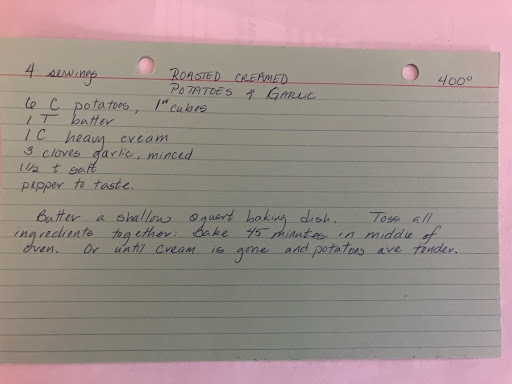 4 servings ROASTED CREAMED 400°
POTATOES & GARLIC
6 C potatoes, 1" cubes
1 T butter
1 C heavy cream
3 cloves garlic, minced
1 1/2 t salt
pepper to taste.
Butter a shallow quart baking dish. Toss all
ingredients together. Bake 45 minutes in middle of
oven. Or until cream is gone and potatoes are tender.